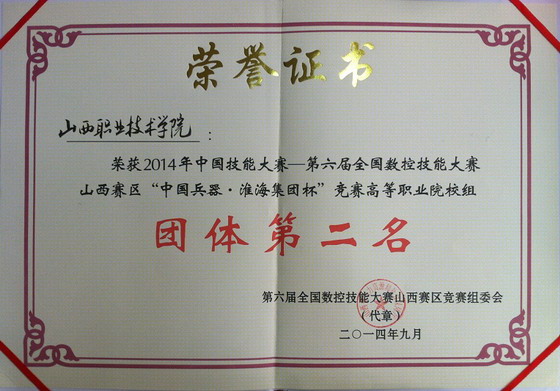 荣誉证书
山西职业技术学院：
荣获2014年中国技能大赛—第六届全国数控技能大赛
山西赛区“中国兵器·淮海集团杯”竞赛高等职业院校组
团体第二名
第六届全国数控技能大赛山西赛区竞赛组委会
（代章）
二〇一四年九月